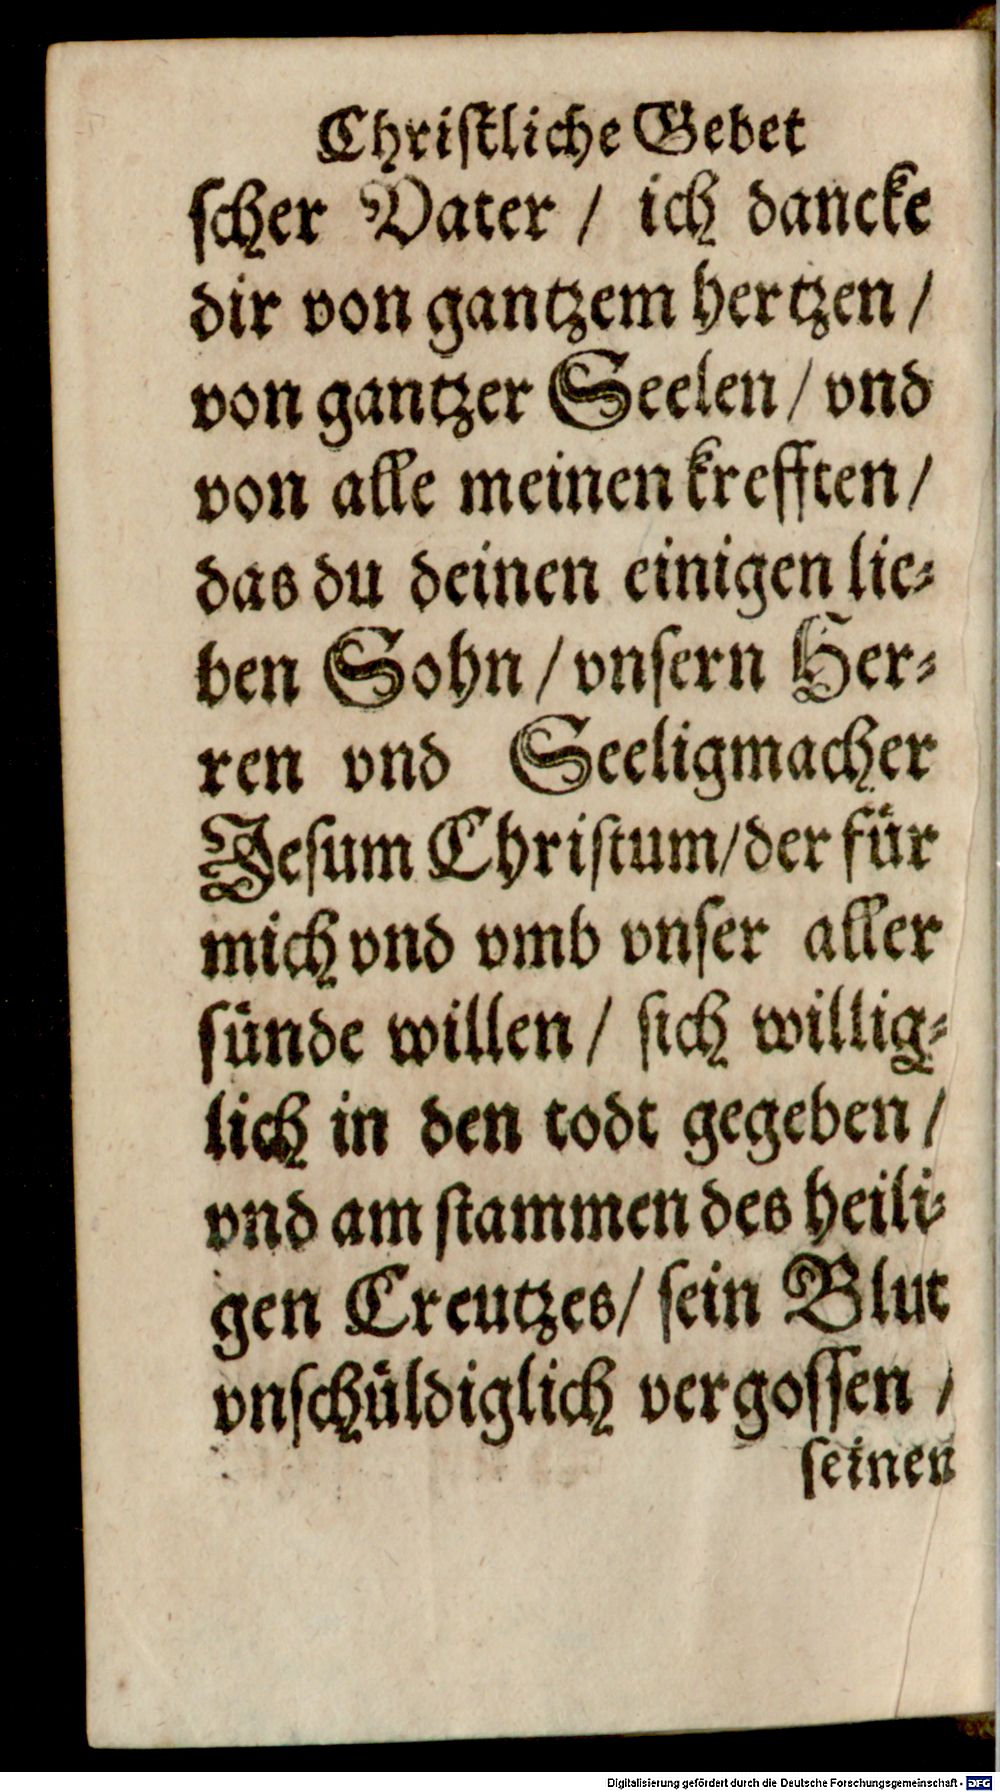 Chriſtliche Gebet
ſcher Vater / ich dancke
dir von gantzem hertzen /
von gantzer Seelen / vnd
von alle meinen krefften /
das du deinen einigen lie⸗
ben Sohn / vnſern Her⸗
ren vnd Seeligmacher
Jeſum Chriſtum / der für
mich vnd vmb vnſer aller
ſünde willen / ſich willig⸗
lich in den todt gegeben /
vnd am ſtammen des heili⸗
gen Creutzes / ſein Blut
vnſchüldiglich vergoſſen /
ſeinen
Digitalisierung gefördert durch die Deutsche Forschungsgemeinschaft - DFG